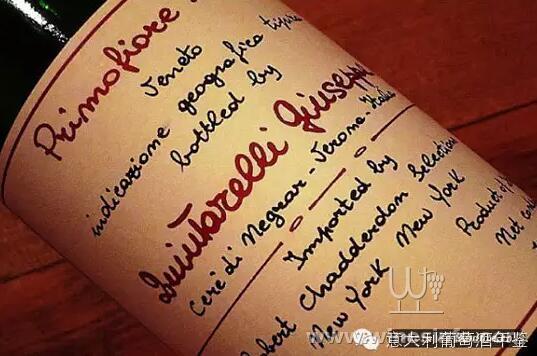 Primofiore
Veneto
indicazione geografica tipica
bottled by
Quintarelli Giuseppe
Cerè di Negrar - Verona - Italia
Imported by
Robert Chadderdon Selections
New York New York
Product of
Net cont
意大利葡萄酒年鉴